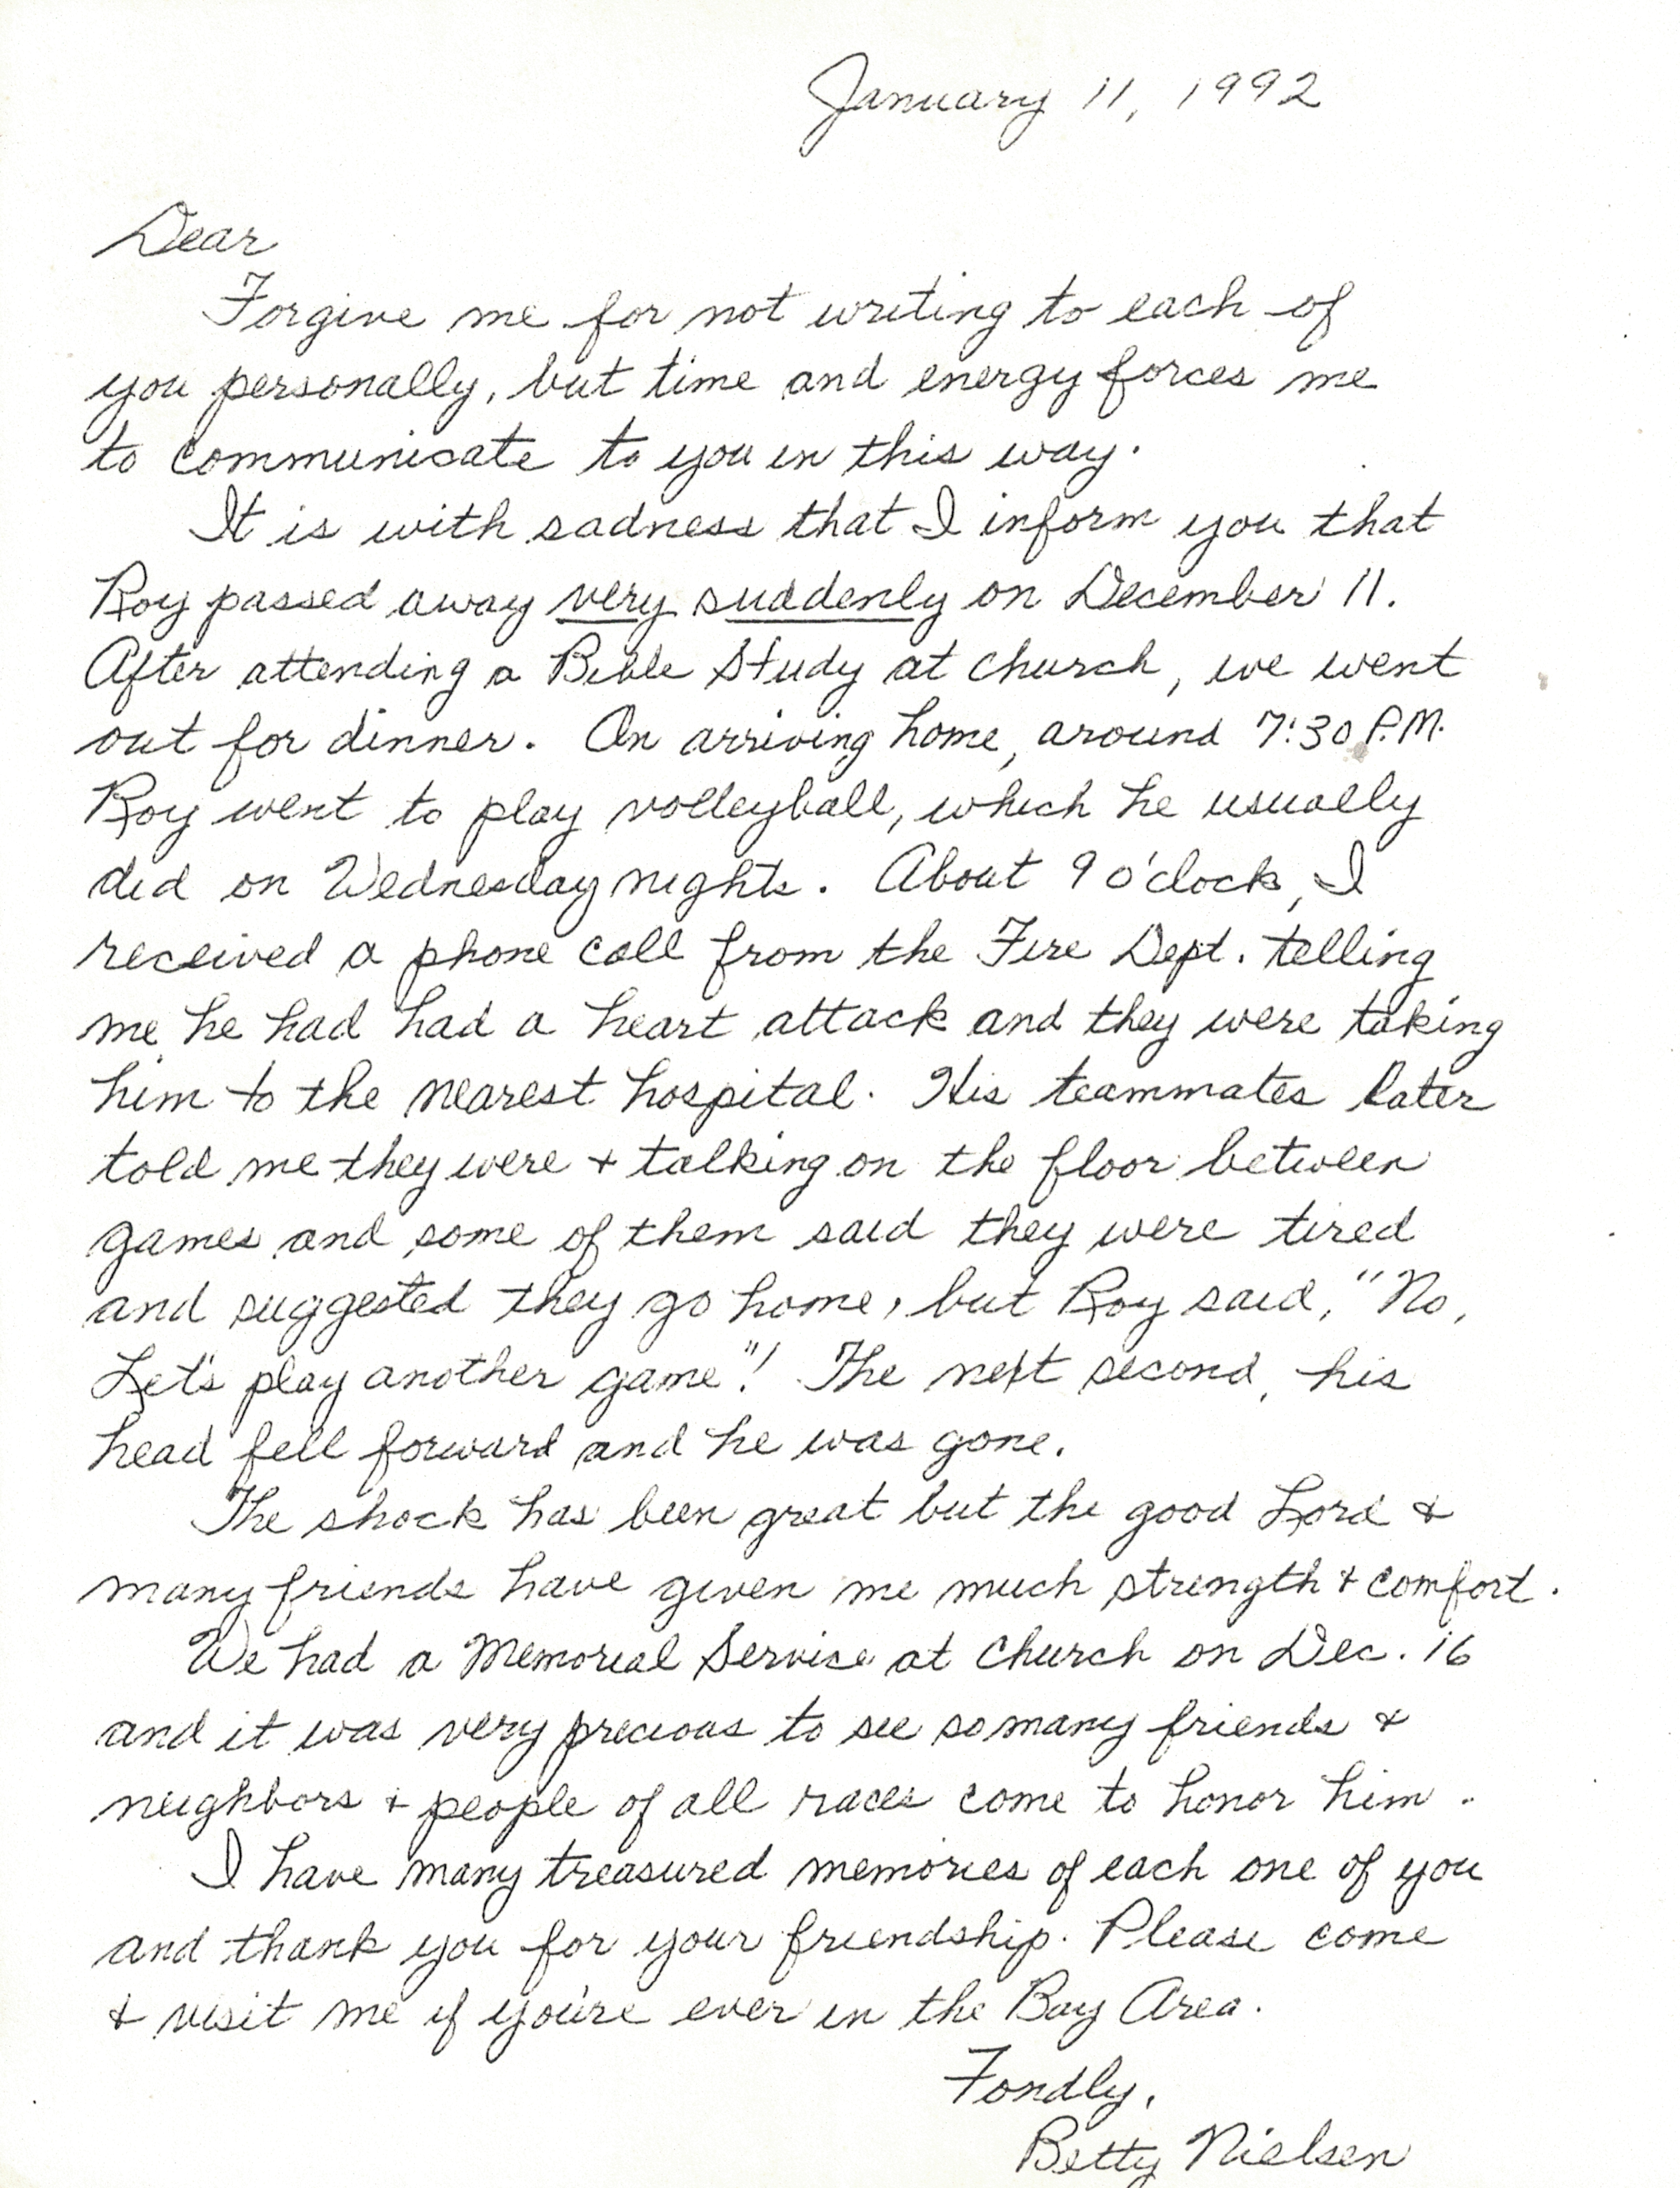 January 11, 1992
Dear
Forgive me for not writing to each of
you personally, but time and energy forces me
to communicate to you in this way.
It is with sadness that I inform you that
Roy passed away very suddenly on December 11.
After attending a Bible Study at church, we went
out for dinner. On arriving home, around 7:30 P.M.
Roy went to play volleyball, which he usually
did on Wednesday nights. About 9 o'clock, I
received a phone call from the Fire Dept. telling
me he had had a heart attack and they were taking
him to the nearest hospital. His teammates later
told me they were + talking on the floor between
games and some of them said they were tired
and suggested they go home, but Roy said, "No,
Let's play another game"! The next second, his
head fell forward and he was gone.
The shock has been great but the good Lord &
many friends have given me much strength & comfort.
We had a Memorial Service at church on Dec. 16
and it was very precious to see so many friends &
neighbors + people of all races come to honor him.
I have many treasured memories of each one of you
and thank you for your friendship. Please come
& visit me if you're ever in the Bay Area.
Fondly,
Betty Nielsen